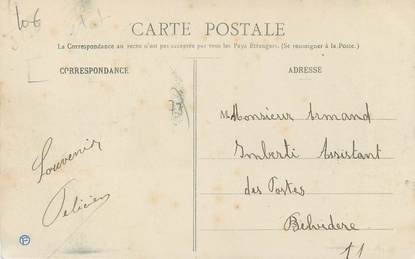 10€
CARTE POSTALE
La Correspondance au recto n'est pas acceptée par tous les Pays Étrangers. (Se renseigner à la Poste.)
CORRESPONDANCE
ADRESSE
Souvenir
Felicien
Monsieur Armand
Imberti Assistant
des Postes
Belvédère